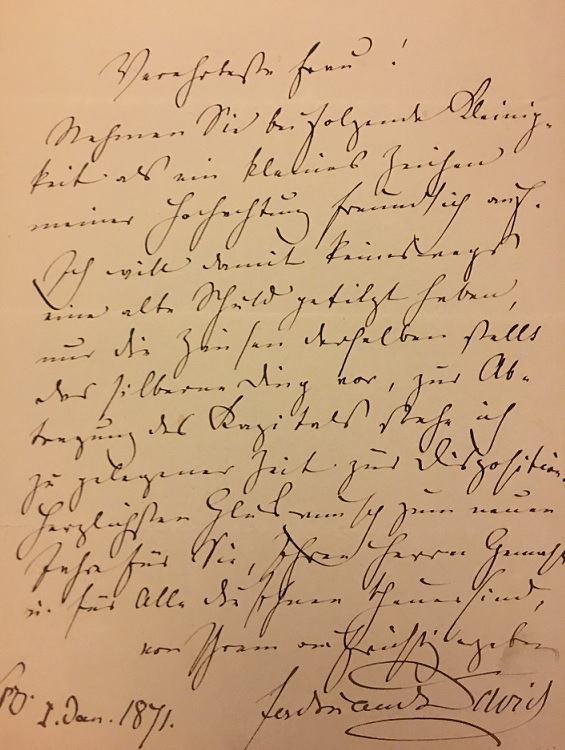 Verehrteste Frau!
Nehmen Sie beifolgende Kleinig-
keit als ein kleines Zeichen
meiner Hochachtung freundlich auf.
Ich will damit keineswegs
eine alte Schuld getilgt haben,
nur die Zinsen derselben stellt
das silberne Ding vor, zur Ab-
tragung des Kapitals stehe ich
zu gelegener Zeit zur Disposition.
Herzlichsten Glückwunsch zum neuen
Jahr für Sie, Ihren Herrn Gemahl
u. für Alle die Ihnen theuer sind,
von Ihrem aufrichtig ergeben
Ferdinand David
Lpz. 1. Jan. 1871.